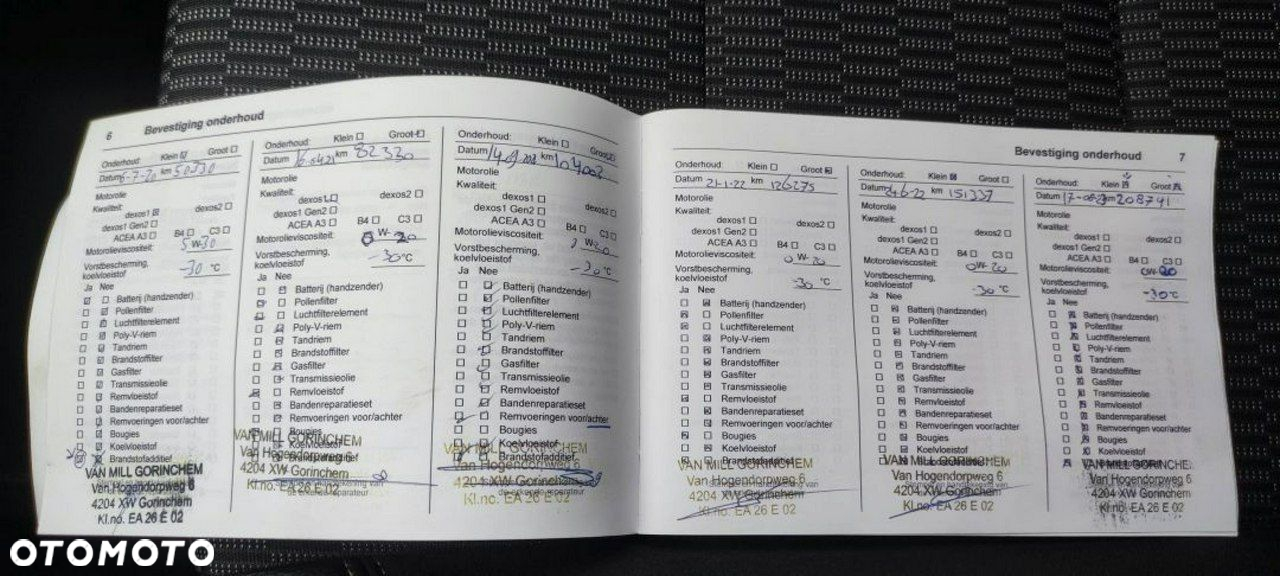 6 Bevestiging onderhoud
Onderhoud: Klein ☑ Groot ☐
Datum 6-7-20 km 50230
Motorolie
Kwaliteit:
dexos1 ☒ dexos2 ☐
dexos1 Gen2 ☐
ACEA A3 ☐ B4 ☐ C3 ☐
Motorolieviscositeit: 5W-30
Vorstbescherming,
koelvloeistof -30 °C
Ja Nee
Batterij (handzender)
Pollenfilter
Luchtfilterelement
Poly-V-riem
Tandriem
Brandstoffilter
Gasfilter
Transmissieolie
Remvloeistof
Bandenreparatieset
Remvoeringen voor/achter
Bougies
Koelvloeistof
Brandstofadditief
VAN MILL GORINCHEM
Van Hogendorpweg 6
4204 XW Gorinchem
Kl.no. EA 26 E 02
Onderhoud: Klein ☐ Groot
Datum km 82330
Motorolie
Kwaliteit:
dexos1 dexos2 ☐
dexos1 Gen2 ☐
ACEA A3 ☐ B4 ☐ C3 ☐
Motorolieviscositeit: 0 W- 20
Vorstbescherming,
koelvloeistof -30 °C
Ja Nee
Batterij (handzender)
Pollenfilter
Luchtfilterelement
Poly-V-riem
Tandriem
Brandstoffilter
Gasfilter
Transmissieolie
Remvloeistof
Bandenreparatieset
Remvoeringen voor/achter
Bougies
Koelvloeistof
Brandstofadditief
VAN MILL GORINCHEM
Van Hogendorpweg 6
4204 XW Gorinchem
Kl.no. EA 26 E 02
Onderhoud: Klein ☐ Groot
Datum km 104002
Motorolie
Kwaliteit:
dexos1 ☐ dexos2 ☐
dexos1 Gen2 ☐
ACEA A3 ☐ B4 ☐ C3 ☐
Motorolieviscositeit: W-20
Vorstbescherming,
koelvloeistof -30 °C
Ja Nee
Batterij (handzender)
Pollenfilter
Luchtfilterelement
Poly-V-riem
Tandriem
Brandstoffilter
Gasfilter
Transmissieolie
Remvloeistof
Bandenreparatieset
Remvoeringen voor/achter
Bougies
Koelvloeistof
Brandstofadditief
VAN MILL GORINCHEM
Van Hogendorpweg 6
4204 XW Gorinchem
Kl.no. EA 26 E 02
Bevestiging onderhoud 7
Onderhoud: Klein ☐ Groot ☒
Datum 21-1-22 km 126275
Motorolie
Kwaliteit:
dexos1 ☐ dexos2 ☐
dexos1 Gen2 ☐
ACEA A3 ☐ B4 ☐ C3 ☐
Motorolieviscositeit: 0W-20
Vorstbescherming,
koelvloeistof -30 °C
Ja Nee
Batterij (handzender)
Pollenfilter
Luchtfilterelement
Poly-V-riem
Tandriem
Brandstoffilter
Gasfilter
Transmissieolie
Remvloeistof
Bandenreparatieset
Remvoeringen voor/achter
Bougies
Koelvloeistof
Brandstofadditief
VAN MILL GORINCHEM
Van Hogendorpweg 6
4204 XW Gorinchem
Kl.no. EA 26 E 02
Onderhoud: Klein ☒ Groot ☐
Datum km 151337
Motorolie
Kwaliteit:
dexos1 ☐ dexos2 ☐
dexos1 Gen2 ☐
ACEA A3 ☐ B4 ☐ C3 ☐
Motorolieviscositeit: 0W-20
Vorstbescherming,
koelvloeistof -30 °C
Ja Nee
Batterij (handzender)
Pollenfilter
Luchtfilterelement
Poly-V-riem
Tandriem
Brandstoffilter
Gasfilter
Transmissieolie
Remvloeistof
Bandenreparatieset
Remvoeringen voor/achter
Bougies
Koelvloeistof
Brandstofadditief
VAN MILL GORINCHEM
Van Hogendorpweg 6
4204 XW Gorinchem
Kl.no. EA 26 E 02
Onderhoud: Klein Groot
Datum km 208741
Motorolie
Kwaliteit:
dexos1 ☐ dexos2 ☐
dexos1 Gen2 ☐
ACEA A3 ☐ B4 ☐ C3 ☐
Motorolieviscositeit: 0W-20
Vorstbescherming,
koelvloeistof -30 °C
Ja Nee
Batterij (handzender)
Pollenfilter
Luchtfilterelement
Poly-V-riem
Tandriem
Brandstoffilter
Gasfilter
Transmissieolie
Remvloeistof
Bandenreparatieset
Remvoeringen voor/achter
Bougies
Koelvloeistof
Brandstofadditief
VAN MILL GORINCHE
Van Hogendorpweg 6
4204 XW Gorinchem
Kl.no. EA 26 E 02
OTOMOTO